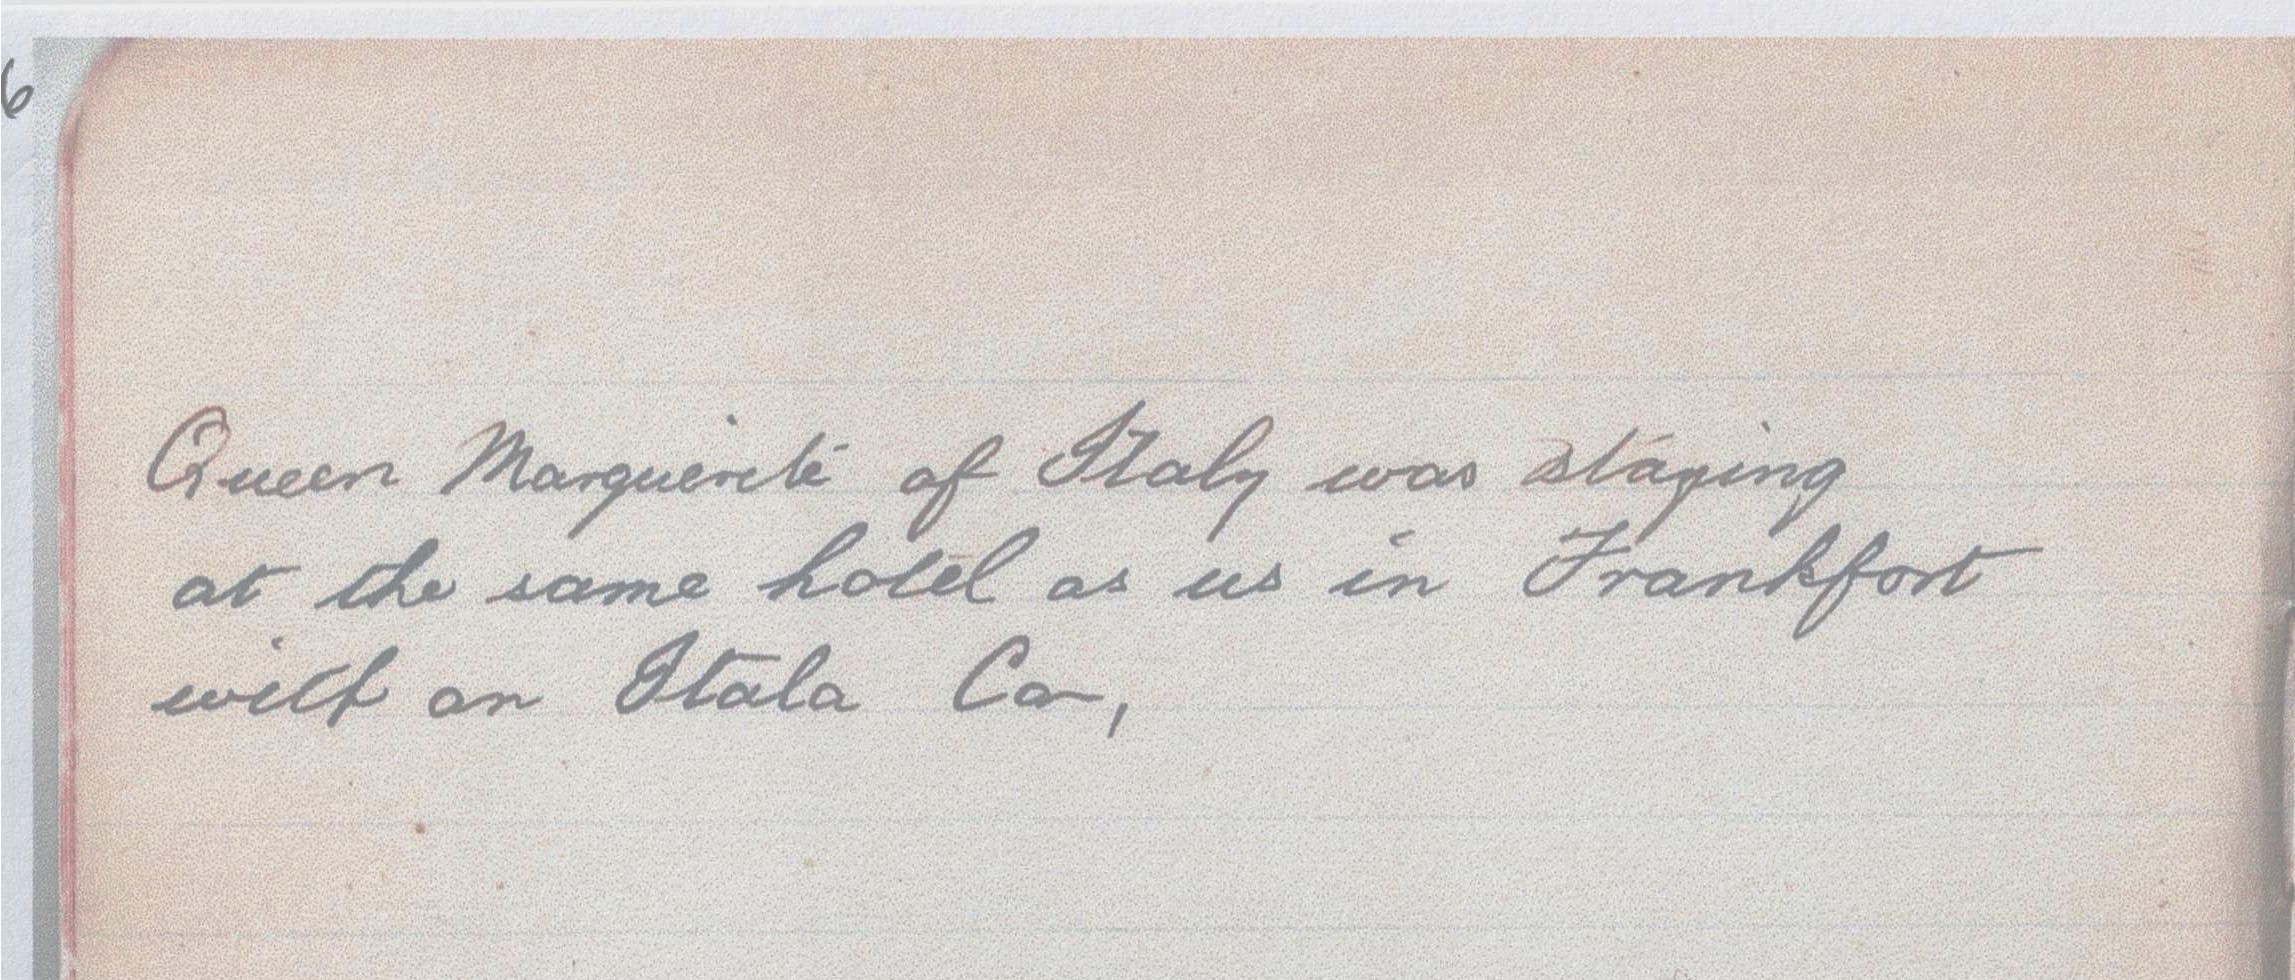 6
Queen Marguerite of Italy was staying
at the same hotel as us in Frankfort
with an Itala Car,